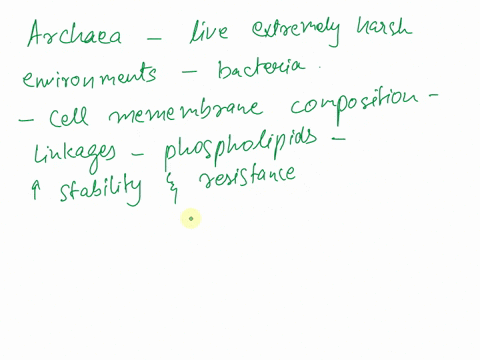 Archaea - live extremely harsh
environments - bacteria.
- Cell memembrane composition -
linkages - phospholipids -
↑ stability & resistance